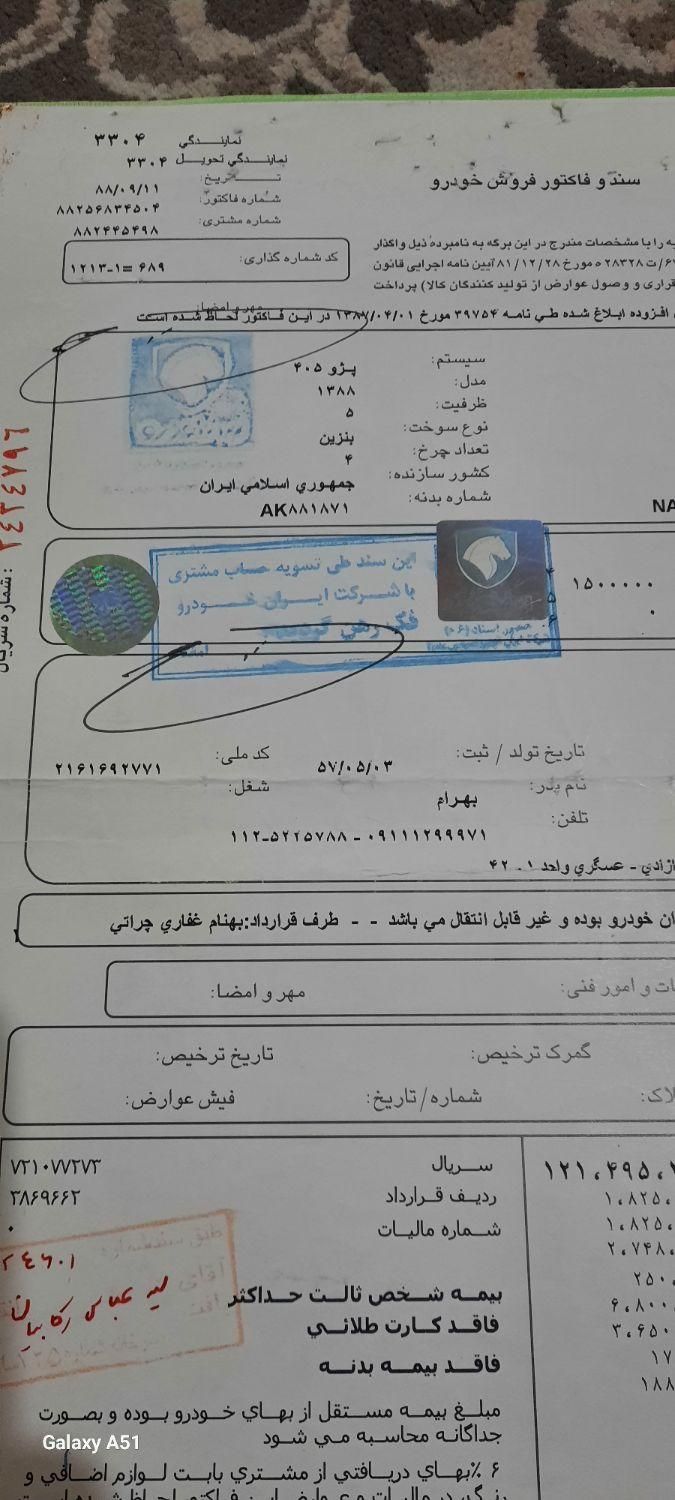 نمایندگی ۳۳۰۴
نمایندگي تحویل ۳۳۰۴
تاریخ: ۸۸/۰۹/۱۱
شماره فاکتور: ۸۸۲۵۶۸۳۴۵۰۴
شماره مشتری: ۸۸۲۴۴۵۴۹۸
سند و فاکتور فروش خودرو
کد شماره گذاری: ۱۲۱۳-۱= ۶۸۹
یه را با مشخصات مندرج در این برگه به نامبرده ذیل واگذار
/ت ۲۸۳۲۸ ه مورخ ۸۱/۱۲/۲۸ آیین نامه اجرایی قانون
قراری و وصول عوارض از تولید کنندگان کالا) پرداخت
مهر و امضا:
افزوده ابلاغ شده طي نامه ۳۹۷۵۴ مورخ ۱۳۸۷/۰۴/۰۱ در این فاکتور لحاظ شده است
سیستم: پژو ۴۰۵
مدل: ۱۳۸۸
ظرفیت: ۵
نوع سوخت: بنزین
تعداد چرخ: ۴
کشور سازنده: جمهوري اسلامي ایران
شماره بدنه: AK۸۸۱۸۷۱
NA
شماره سریال: ۲۴۲۴۷۹۶
این سند طی تسویه حساب مشتری
با شرکت ایران خودرو
فک رهن گردید
۱۵۰۰۰۰۰
۰
تاریخ تولد / ثبت: ۵۷/۰۵/۰۳ کد ملی: ۲۱۶۱۶۹۲۷۷۱
نام پدر: بهرام شغل:
تلفن: ۰۹۱۱۱۲۹۹۹۷۱ - ۱۱۲-۵۲۲۵۷۸۸
ازادي - عسگري واحد ۱ - ۴۲
ان خودرو بوده و غیر قابل انتقال مي باشد - - طرف قرارداد:بهنام غفاري چراتي
ات و امور فنی: مهر و امضا:
گمرک ترخیص: تاریخ ترخیص:
لاک: شماره/تاریخ: فیش عوارض:
سریال ۷۲۱۰۷۷۲۷۳
ردیف قرارداد ۲۸۶۹۶۶۲
شماره مالیات ۰
بیمه شخص ثالث حداکثر
فاقد کارت طلائي
فاقد بیمه بدنه
مبلغ بیمه مستقل از بهاي خودرو بوده و بصورت
جداگانه محاسبه مي شود
۶ ٪بهاي دریافتي از مشتري بابت لوازم اضافي و
۱۲۱،۴۹۵،
۱،۸۲۵،
۱،۸۲۵،
۲،۷۴۸،
۲۵۰
۶،۸۰۰
۳،۶۵۰
۱۷
۱۸۸
Galaxy A51